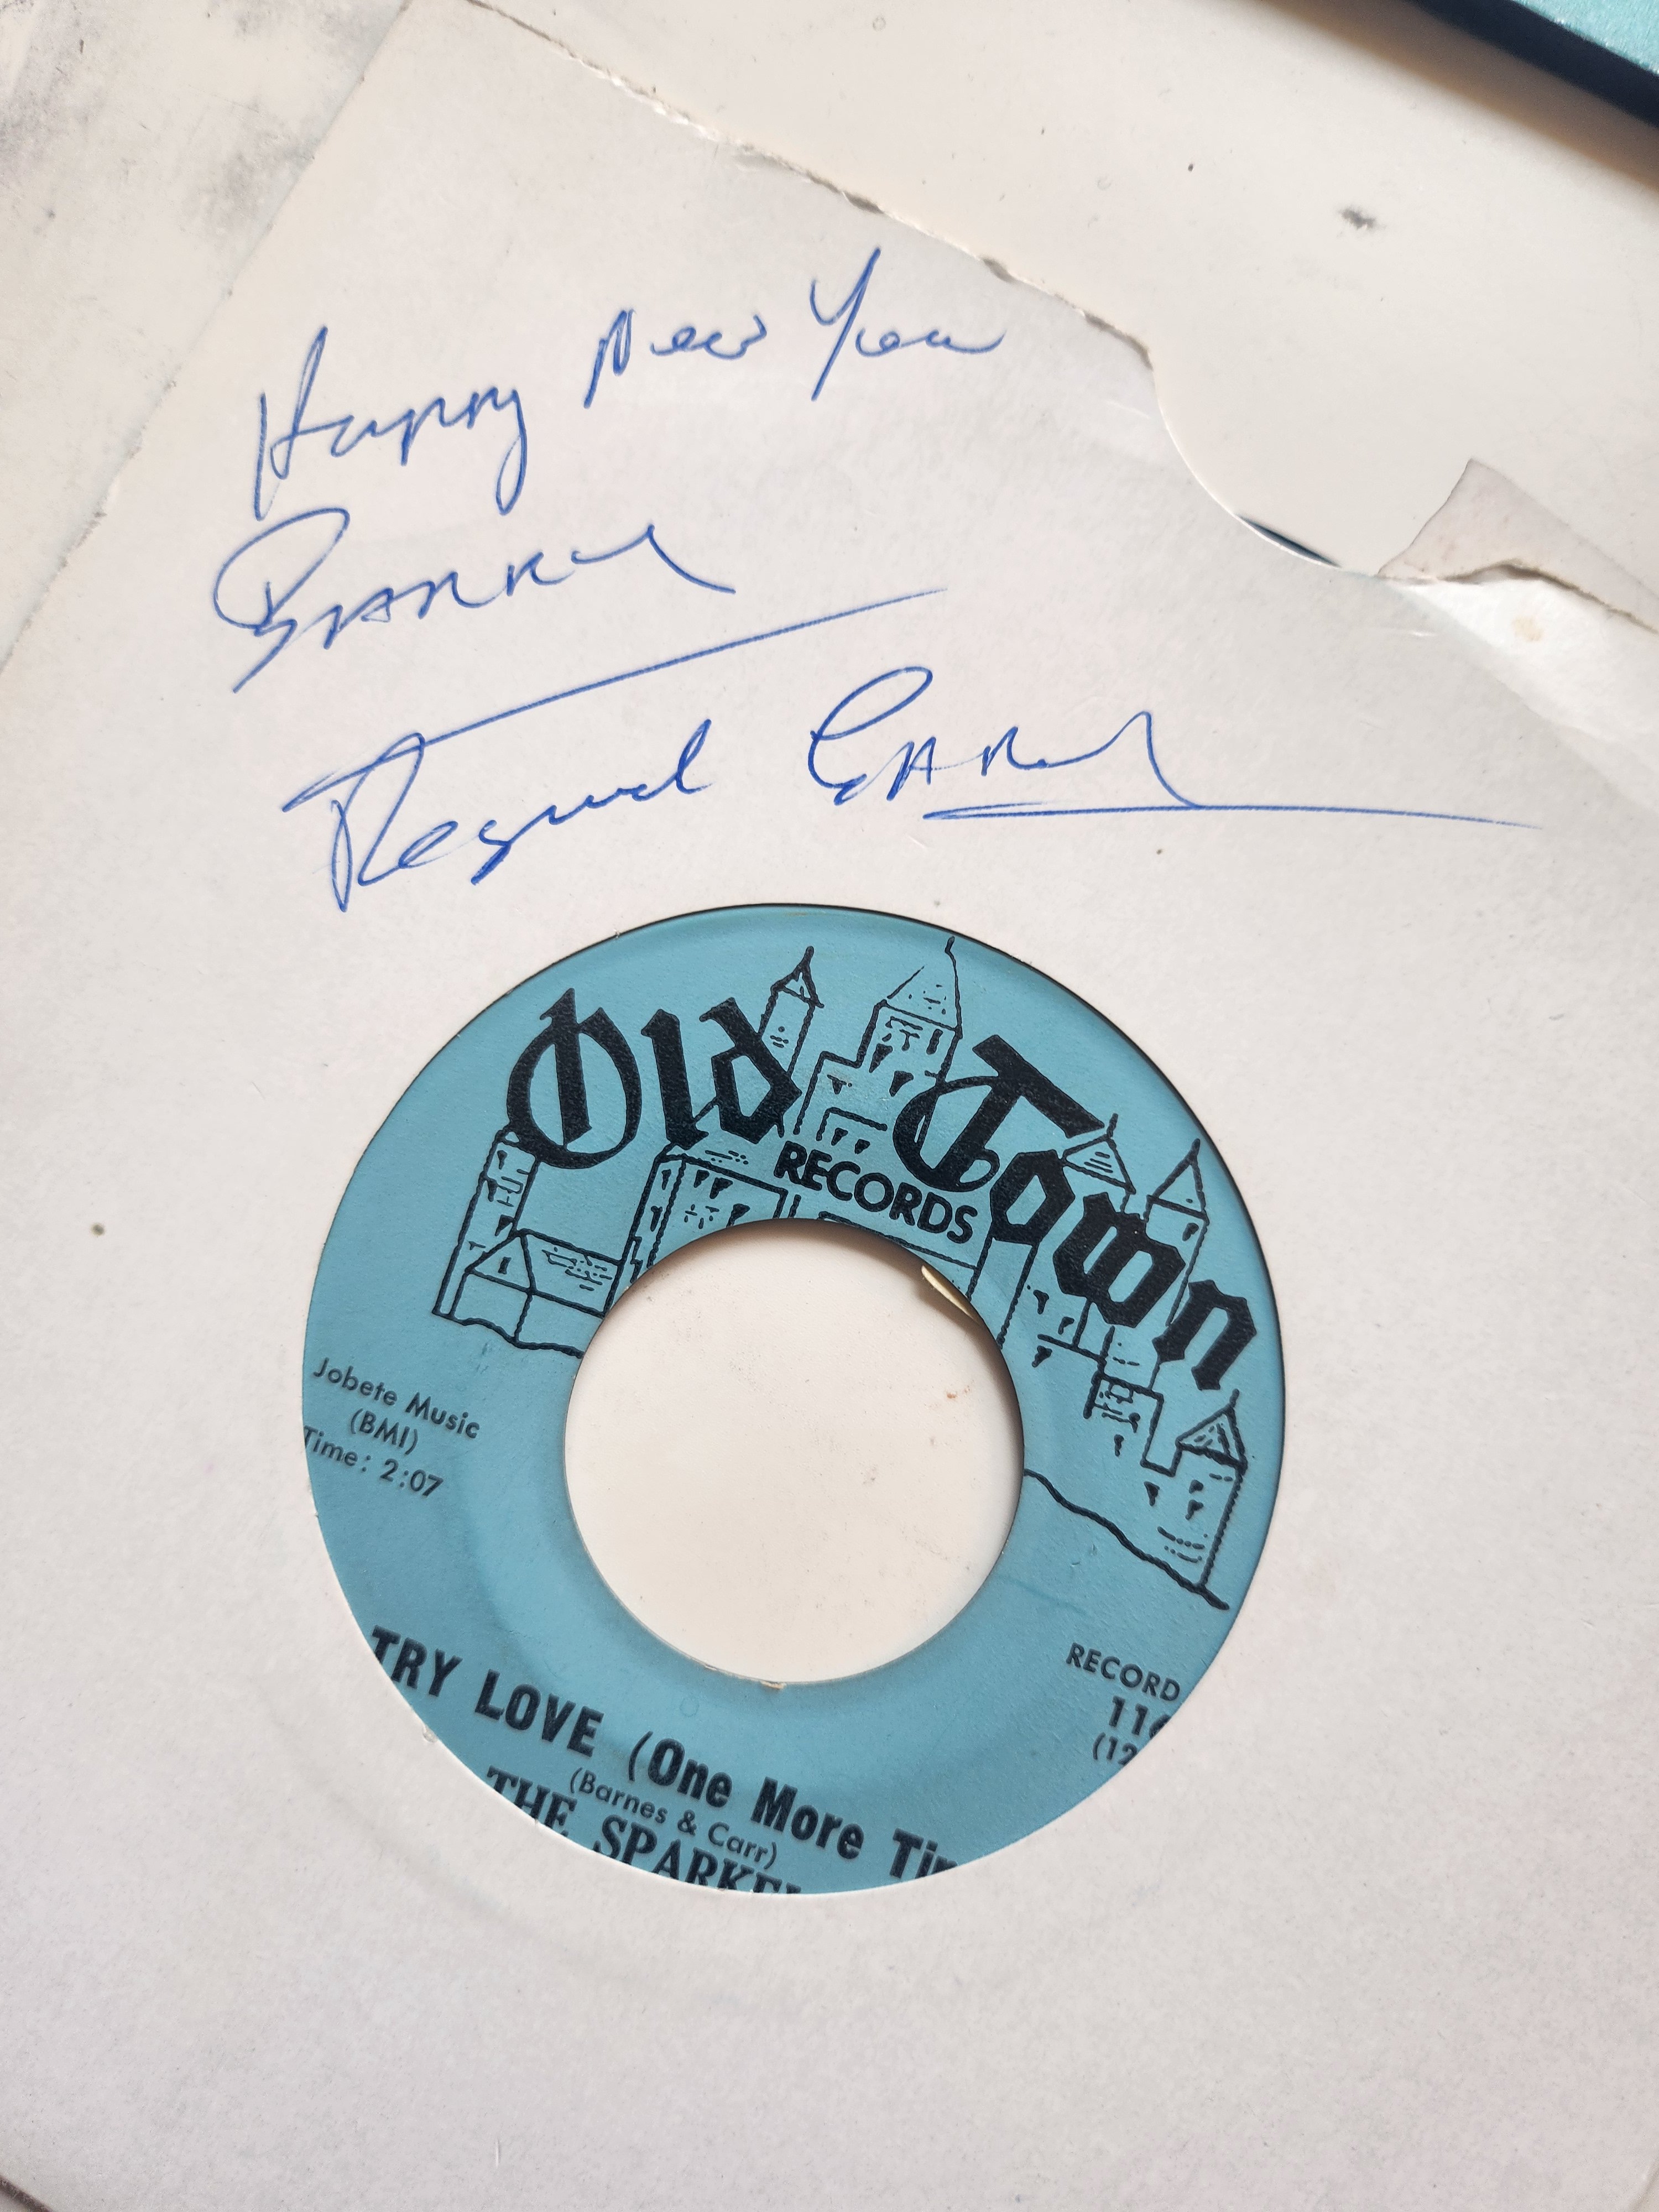 Happy New Year
Barry
Regards Gary
Old Town
RECORDS
Jobete Music
(BMI)
Time: 2:07
RECORD
(12
TRY LOVE (One More
(Barnes & Carr)
THE